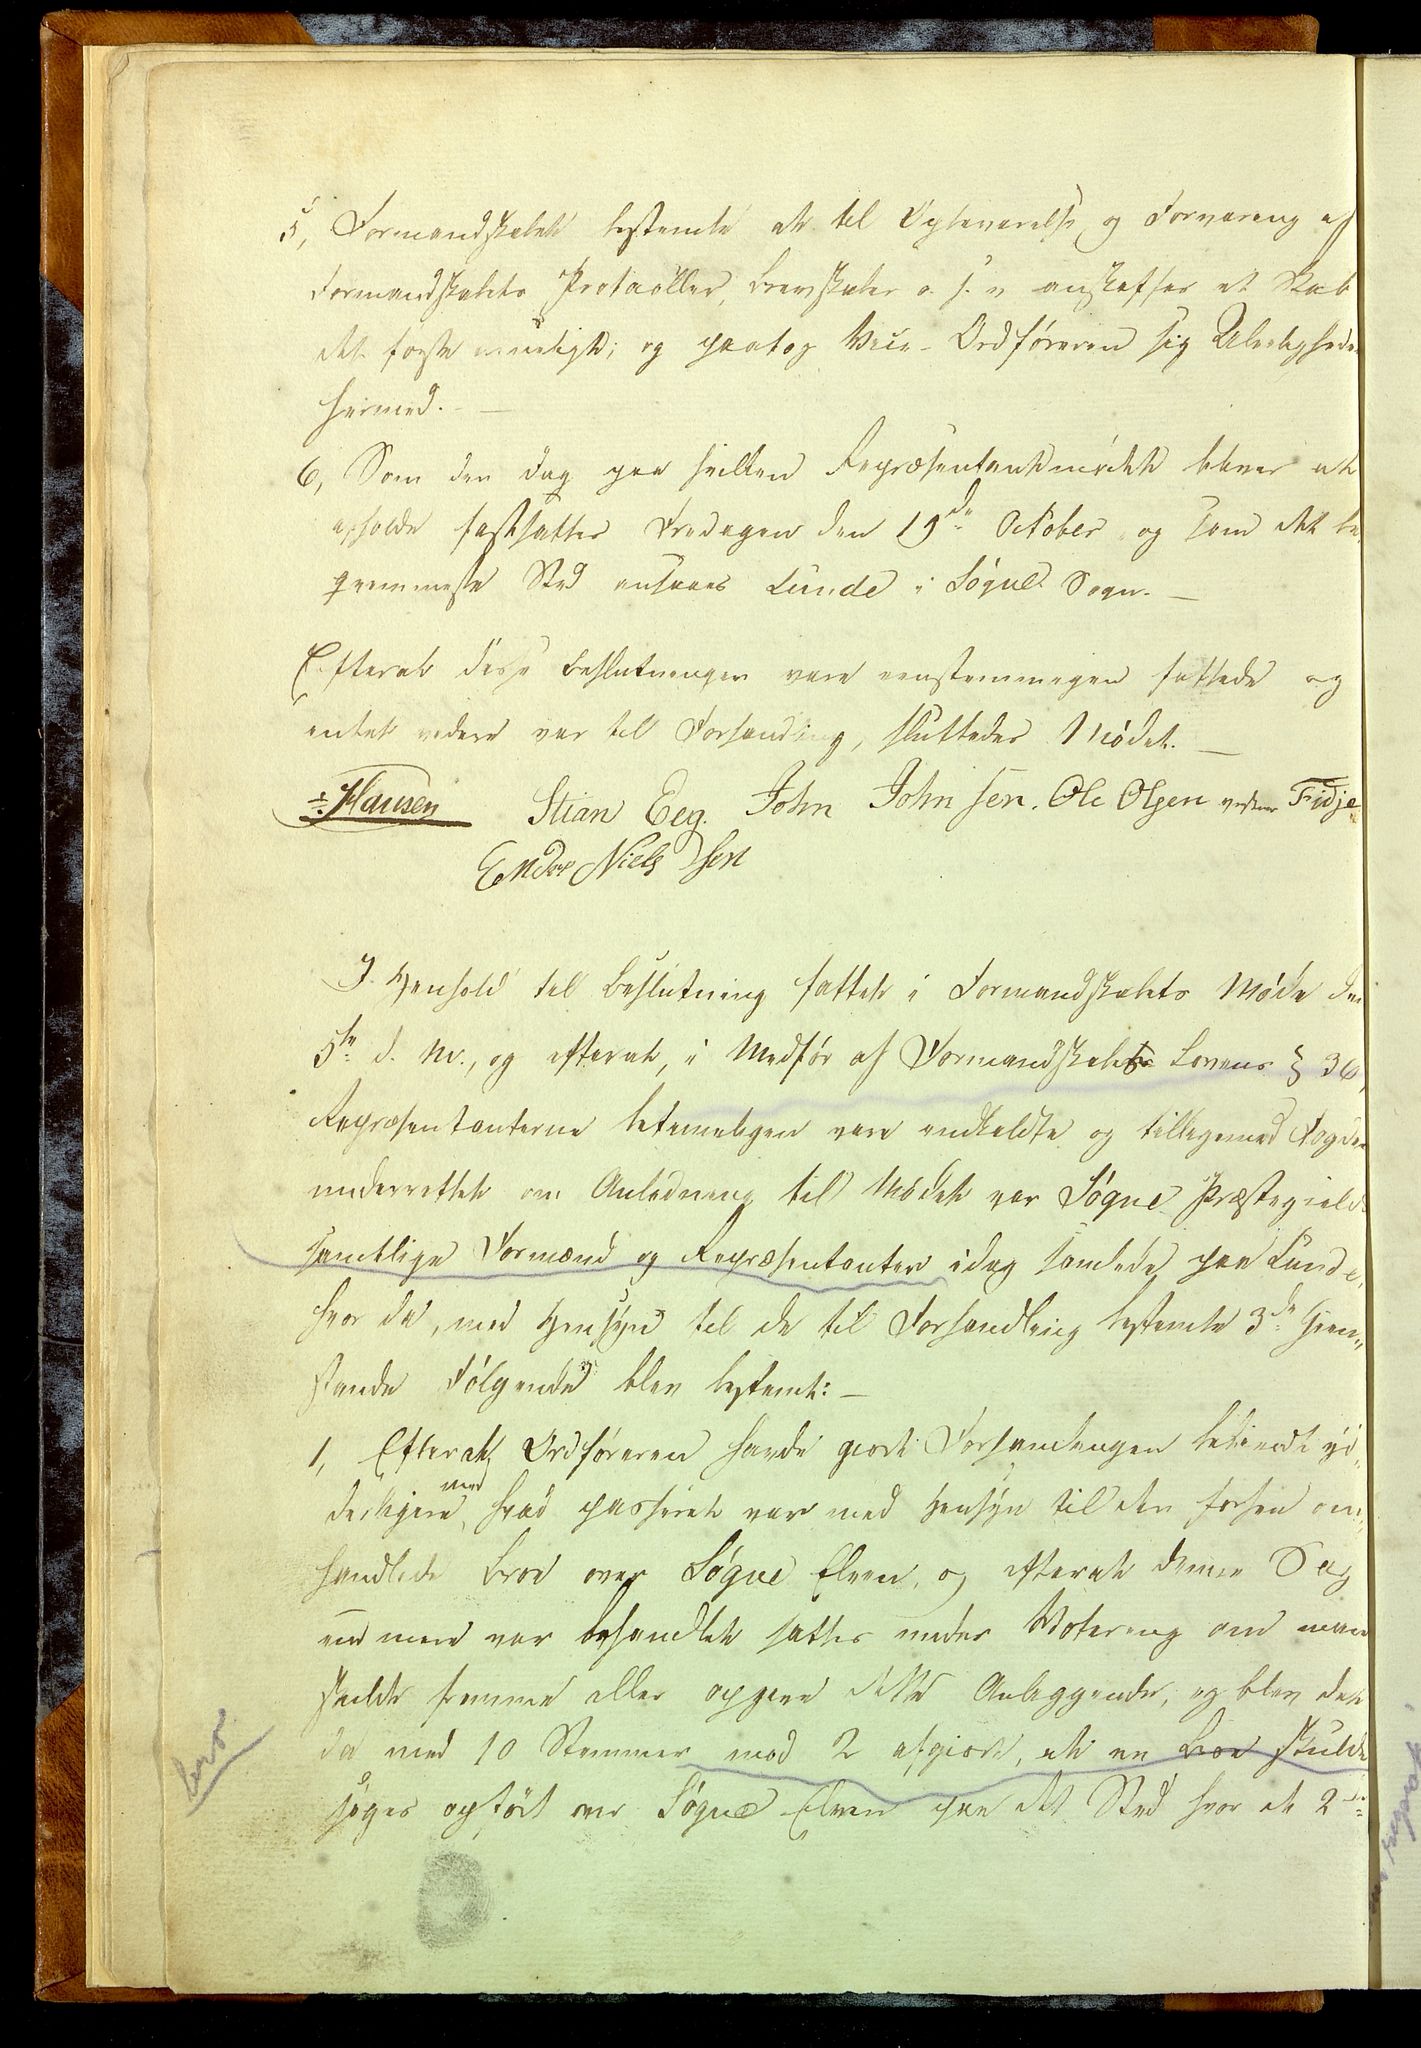 5, Formandskabet bestemte at til Opbevarelse og Forvaring af
Formandskabets Protocoller, Brevskaber o. s. v anskaffes et Skab
det første mueligt; og paatog Vice-Ordføreren sig Uleilighede
hermed. -
6, Som den Dag paa hvilken Repræsentantmødet bliver at
afholde fastsattes Fredagen den 19de October og som det be
qvemmeste Sted ansaaes Lunde i Søgne Sogn. -
Efterat disse Beslutninger vare eenstemmigen fattede og
intet videre var til Forhandling, sluttedes Mødet. -
Hansen Stian Eeg. John Johnsen. Ole Olsen Fidje
Ender Nielsen
I Henhold til Beslutning fattet i Formandskabets Møde den
5te d. M., og efterat, i Medfør af Formandskabs Lovens § 36,
Repræsentanterne betimeligen vare indkaldte og tilligemed Fogden
underrettet om Anledning til Mødet var Søgne Præstegields
samtlige Formænd og Repræsentanter idag samlede paa Lunde,
hvor da, med Hensyn til de til Forhandling bestemte 3de Gien-
stande Følgende blev bestemt: -
1, Efterat Ordføreren havde giort Forsamlingen bekiendt yd-
med
derligere, hvad passeret var med Hensyn til den forhen om-
handlede Broe over Søgne Elven, og efterat denne Sag
end mere var behandlet sattes under Votering om man
skulde fremme eller opgive dette Anliggende, og blev det
da med 10 Stemmer mod 2 afgiort, at en Broe skulde
søges opført over Søgne Elven paa det Sted hvor de 2de
bro